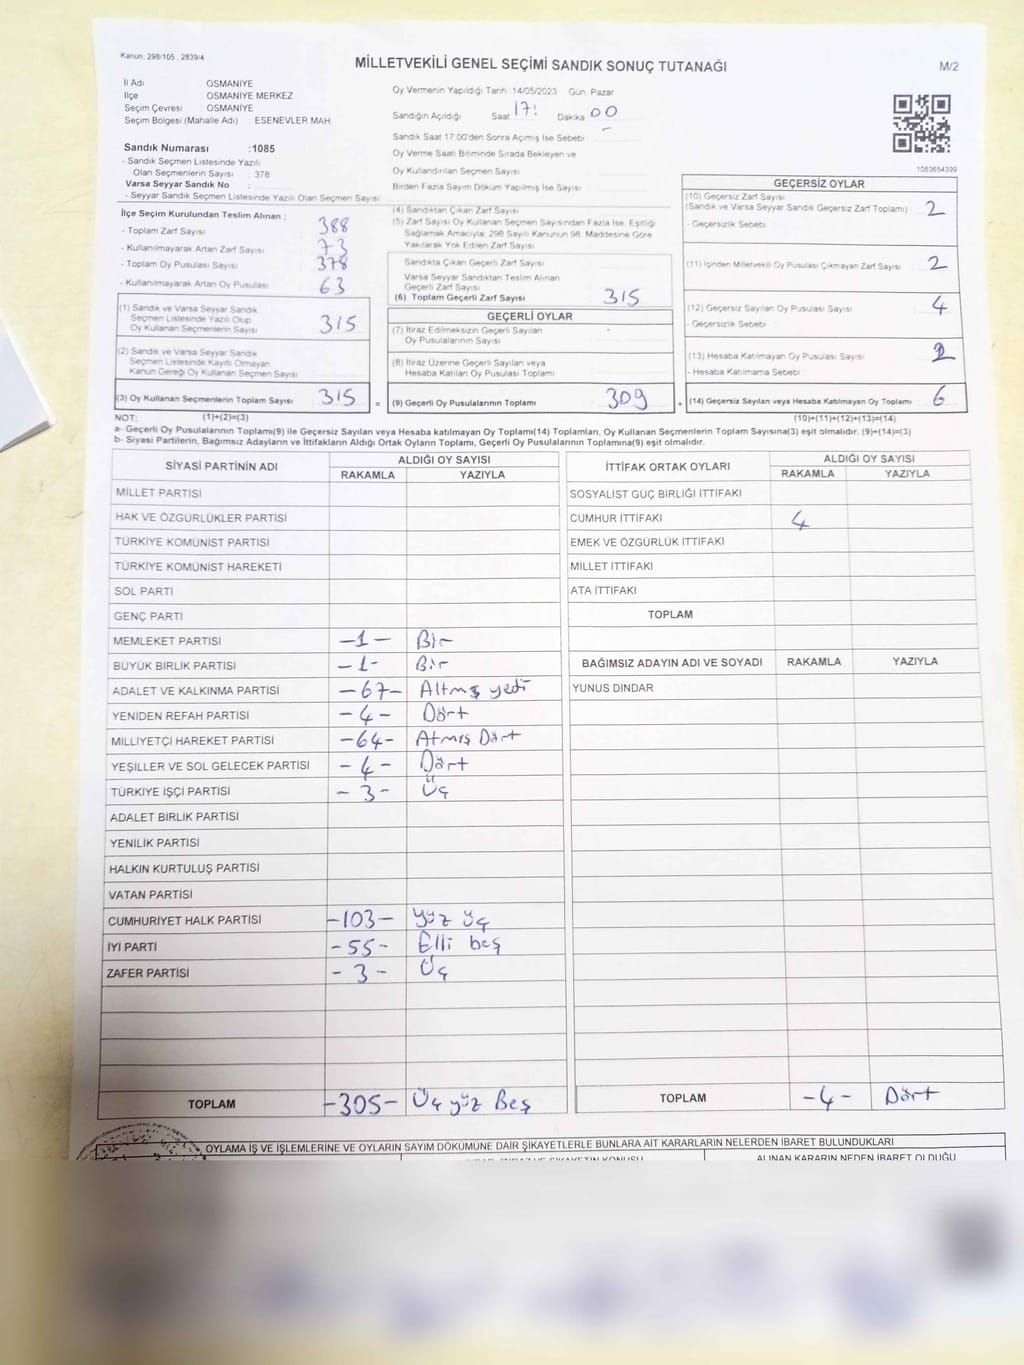 Kanun: 298/105 , 2839/4
MİLLETVEKİLİ GENEL SEÇİMİ SANDIK SONUÇ TUTANAĞI
M/2
İl Adı OSMANİYE
İlçe OSMANİYE MERKEZ
Seçim Çevresi OSMANİYE
Seçim Bölgesi (Mahalle Adı) : ESENEVLER MAH.
Oy Vermenin Yapıldığı Tarih :14/05/2023 Gün: Pazar
Sandığın Açıldığı Saat 17: Dakika 00
Sandık Saat 17:00'den Sonra Açımış İse Sebebi :
Oy Verme Saati Bitiminde Sırada Bekleyen ve
Oy Kullandırılan Seçmen Sayısı
Birden Fazla Sayım Döküm Yapılmış İse Sayısı
1083654399
Sandık Numarası :1085
- Sandık Seçmen Listesinde Yazılı
Olan Seçmenlerin Sayısı : 378
Varsa Seyyar Sandık No :
- Seyyar Sandık Seçmen Listesinde Yazılı Olan Seçmen Sayısı
İlçe Seçim Kurulundan Teslim Alınan ;
- Toplam Zarf Sayısı 388
- Kullanılmayarak Artan Zarf Sayısı 73
- Toplam Oy Pusulası Sayısı 378
- Kullanılmayarak Artan Oy Pusulası 63
(1) Sandık ve Varsa Seyyar Sandık
Seçmen Listesinde Yazılı Olup
Oy Kullanan Seçmenlerin Sayısı 315
(2) Sandık ve Varsa Seyyar Sandık
Seçmen Listesinde Kayıtlı Olmayan
Kanun Gereği Oy Kullanan Seçmen Sayısı
(3) Oy Kullanan Seçmenlerin Toplam Sayısı 315 =
(4) Sandıktan Çıkan Zarf Sayısı
(5) Zarf Sayısı Oy Kullanan Seçmen Sayısından Fazla İse, Eşitliği
Sağlamak Amacıyla; 298 Sayılı Kanunun 98. Maddesine Göre
Yakılarak Yok Edilen Zarf Sayısı
Sandıkta Çıkan Geçerli Zarf Sayısı
Varsa Seyyar Sandıktan Teslim Alınan
Geçerli Zarf Sayısı
(6) Toplam Geçerli Zarf Sayısı 315
GEÇERLİ OYLAR
(7) İtiraz Edilmeksizin Geçerli Sayılan
Oy Pusulalarının Sayısı
(8) İtiraz Üzerine Geçerli Sayılan veya
Hesaba Katılan Oy Pusulası Toplamı
(9) Geçerli Oy Pusulalarının Toplamı 309 +
GEÇERSİZ OYLAR
(10) Geçersiz Zarf Sayısı
(Sandık ve Varsa Seyyar Sandık Geçersiz Zarf Toplamı) 2
- Geçersizlik Sebebi
(11) İçinden Milletvekili Oy Pusulası Çıkmayan Zarf Sayısı 2
(12) Geçersiz Sayılan Oy Pusulası Sayısı 4
- Geçersizlik Sebebi
(13) Hesaba Katılmayan Oy Pusulası Sayısı
- Hesaba Katılmama Sebebi
(14) Geçersiz Sayılan veya Hesaba Katılmayan Oy Toplamı 6
NOT: (1)+(2)=(3) (10)+(11)+(12)+(13)=(14)
a- Geçerli Oy Pusulaları(9) ile Geçersiz Sayılan veya Hesaba katılmayan Oy Toplamı(14) Toplamları, Oy Kullanan Seçmenlerin Toplam Sayısına(3) eşit olmalıdır. (9)+(14)=(3)
b- Siyasi Partilerin, Bağımsız Adayların ve İttifakların Aldığı Ortak Oyların Toplamı, Geçerli Oy Pusulalarının Toplamına(9) eşit olmalıdır.
SİYASİ PARTİNİN ADI ALDIĞI OY SAYISI
RAKAMLA YAZIYLA
MİLLET PARTİSİ
HAK VE ÖZGÜRLÜKLER PARTİSİ
TÜRKİYE KOMÜNİST PARTİSİ
TÜRKİYE KOMÜNİST HAREKETİ
SOL PARTİ
GENÇ PARTİ
MEMLEKET PARTİSİ -1- Bir
BÜYÜK BİRLİK PARTİSİ -1- Bir
ADALET VE KALKINMA PARTİSİ -67- Altmış yedi
YENİDEN REFAH PARTİSİ -4- Dört
MİLLİYETÇİ HAREKET PARTİSİ -64- Atmış Dört
YEŞİLLER VE SOL GELECEK PARTİSİ -4- Dört
TÜRKİYE İŞÇİ PARTİSİ -3- Üç
ADALET BİRLİK PARTİSİ
YENİLİK PARTİSİ
HALKIN KURTULUŞ PARTİSİ
VATAN PARTİSİ
CUMHURİYET HALK PARTİSİ -103- Yüz üç
İYİ PARTİ -55- Elli beş
ZAFER PARTİSİ -3- Üç
TOPLAM -305- Üç yüz Beş
İTTİFAK ORTAK OYLARI ALDIĞI OY SAYISI
RAKAMLA YAZIYLA
SOSYALİST GÜÇ BİRLİĞİ İTTİFAKI
CUMHUR İTTİFAKI 4
EMEK VE ÖZGÜRLÜK İTTİFAKI
MİLLET İTTİFAKI
ATA İTTİFAKI
TOPLAM
BAĞIMSIZ ADAYIN ADI VE SOYADI RAKAMLA YAZIYLA
YUNUS DINDAR
TOPLAM -4- Dört
OYLAMA İŞ VE İŞLEMLERİNE VE OYLARIN SAYIM DÖKÜMÜNE DAİR ŞİKAYETLERLE BUNLARA AİT KARARLARIN NELERDEN İBARET BULUNDUKLARI
ALINAN KARARIN NEDEN İBARET OLDUĞU